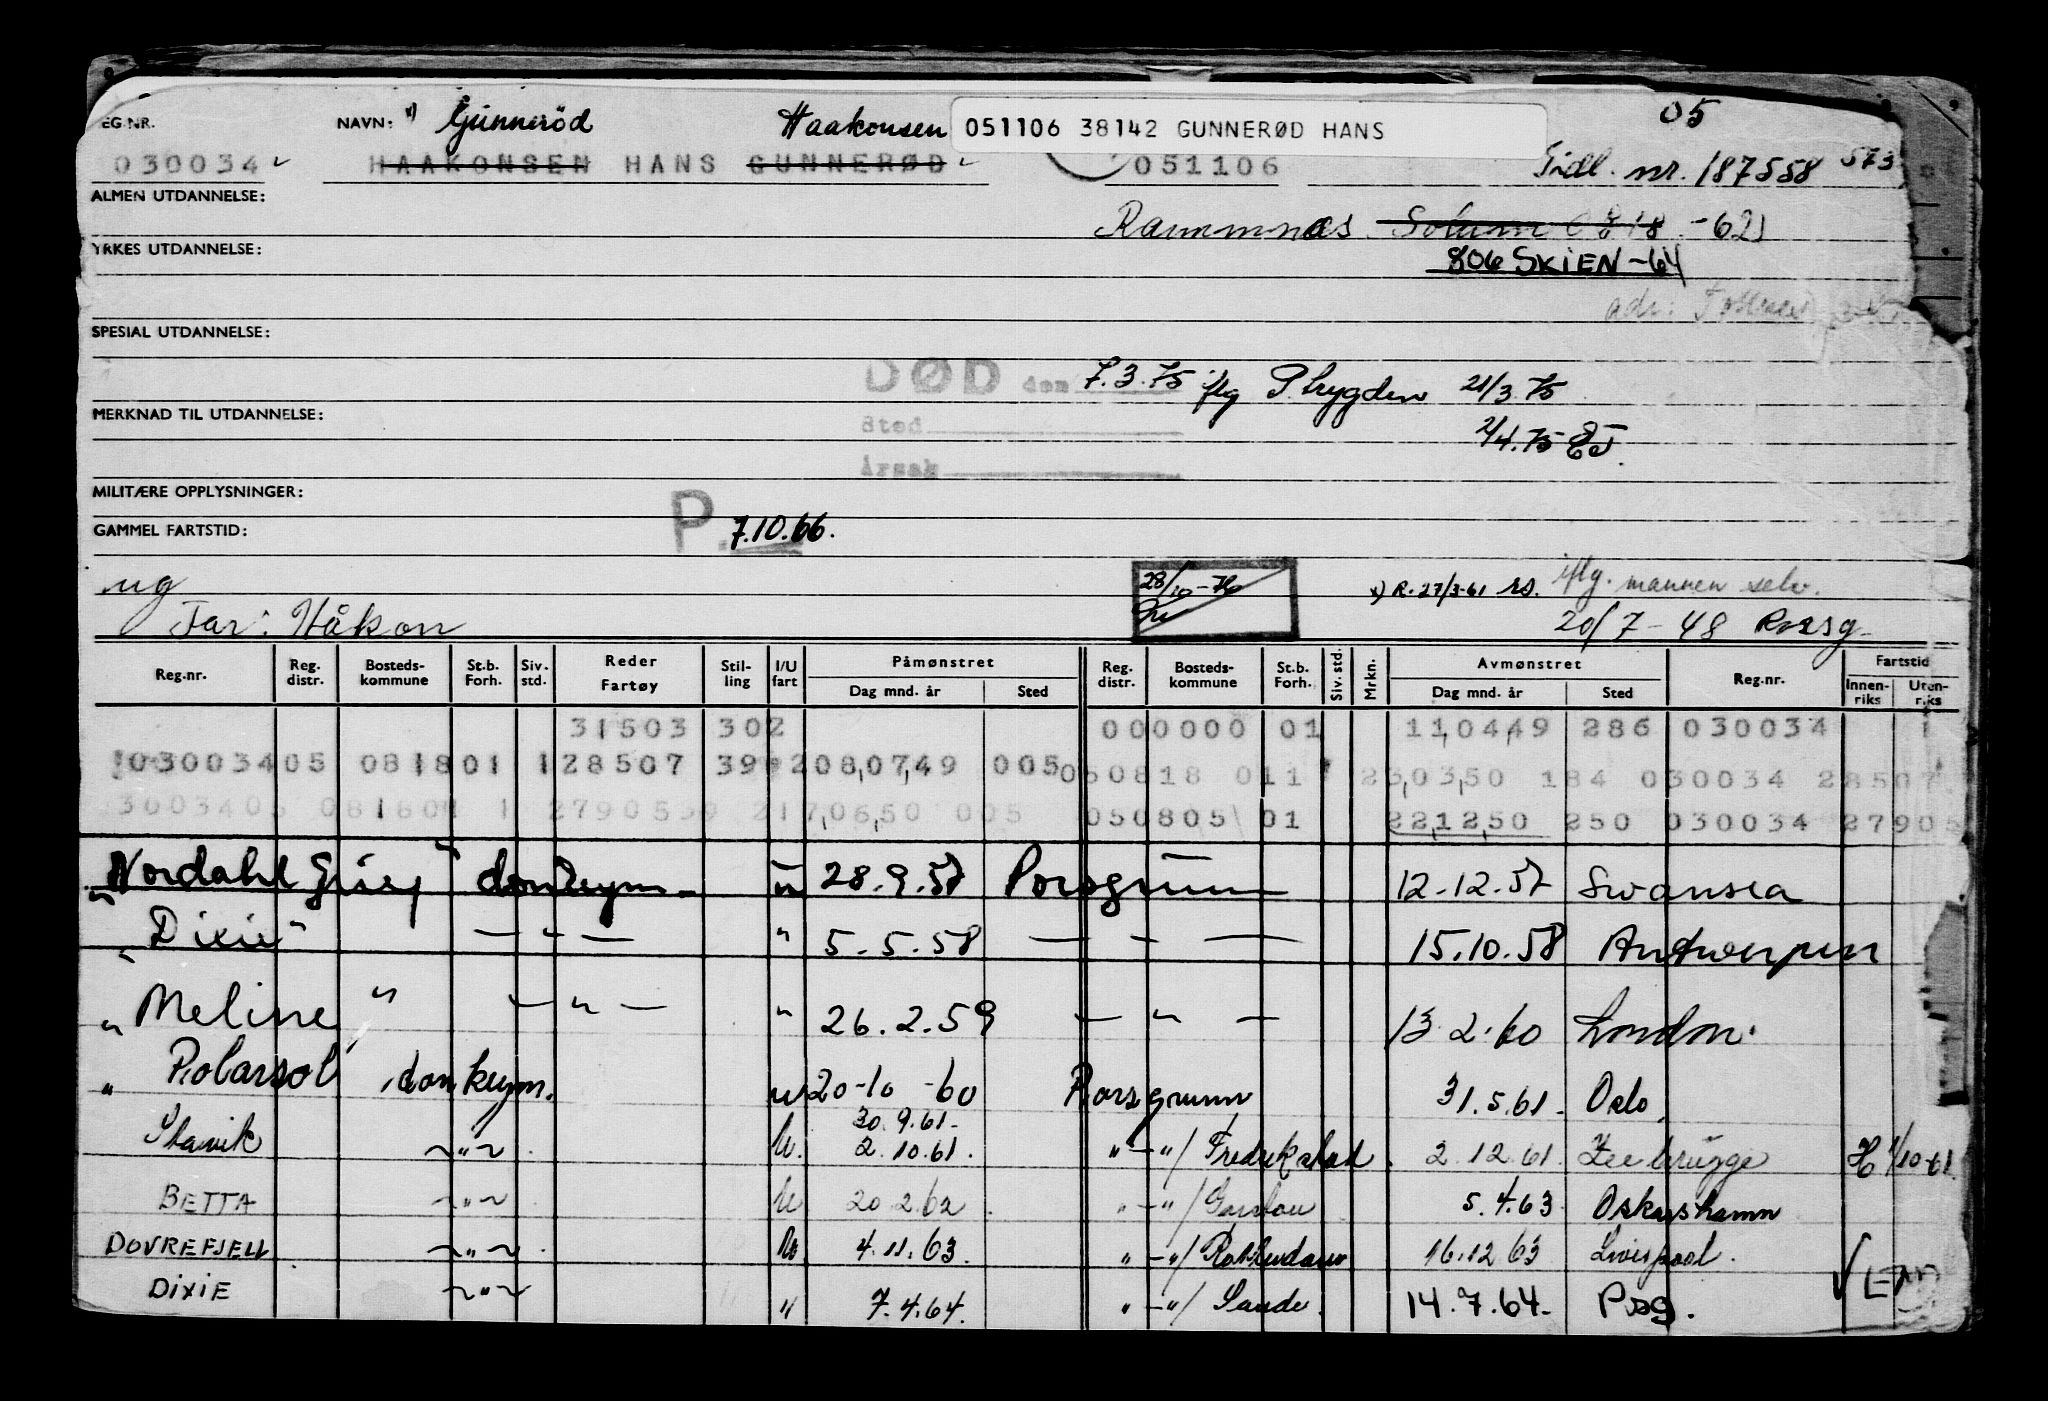 EG.NR. NAVN: x) Gunnerød Haakonsen 051106 38142 GUNNERØD HANS 05
030034 HAAKONSEN HANS GUNNERØD 051106 Tidl. nr. 187558 573
ALMEN UTDANNELSE:
Rammnes Solum 0818 -62
YRKES UTDANNELSE:
806 SKIEN -64
adr:
SPESIAL UTDANNELSE:
DØD den 7.3.75 iflg P.trygden 21/3.75
MERKNAD TIL UTDANNELSE:
Sted 2/4.75 EJ.
Årsak
MILITÆRE OPPLYSNINGER:
P. 7.10.66.
GAMMEL FARTSTID:
ug 28/10-70 x) R. 27/3-61 rs. iflg. mannen selv.
Far: Håkon 20/7-48 Porsg.
Reg.nr. Reg. distr. Bosteds-kommune St.b. Forh. Siv. std. Reder Fartøy Stil-ling I/U fart Påmønstret Dag mnd. år Sted Reg. distr. Bosteds-kommune St.b. Forh. Siv. std. Mrkn. Avmønstret Dag mnd. år Sted Reg.nr. Fartstid Innen-riks Uten-riks
31503 302 000000 01 110449 286 030034 1
030034 05 0818 01 1 28507 39 2 080749 005 050818 011 230350 184 030034 28507
30034 05 0818 01 1 27905 2 170650 005 050805 01 221250 250 030034 27905
"Nordahl Grieg" donkeym. u 28.9.57 Porsgrunn 12.-12.57 Swansea
"Dixie" — " — " 5.5.58 — " — 15.10.58 Antwerpen
"Meline" — " — " 26.2.59 — " — 13.2.60 London.
" Polarsol donkeym. u 20-10-60 Porsgrunn 31.5.61. Oslo.
30.9.61-
Stavik ~"~ U. 2.10.61. "-"/Fredrikstad. 2.12.61 Zeebrügge H 1/10-61
BETTA ~"~ U 20.2.62. "-"/ 5.4.63 Oskarshamn
DOVREFJELL ~"~ U 4.11.63. "-"/Rotterdam 16.12.63 Liverpool.
DIXIE ~"~ " 7.4.64. "-"/Sande. 14.7.64- Psg.